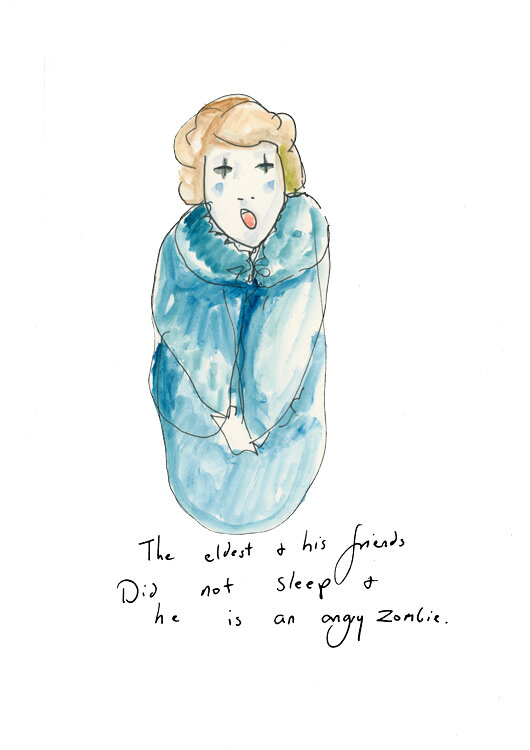 The eldest & his friends
Did not sleep &
he is an angry zombie.